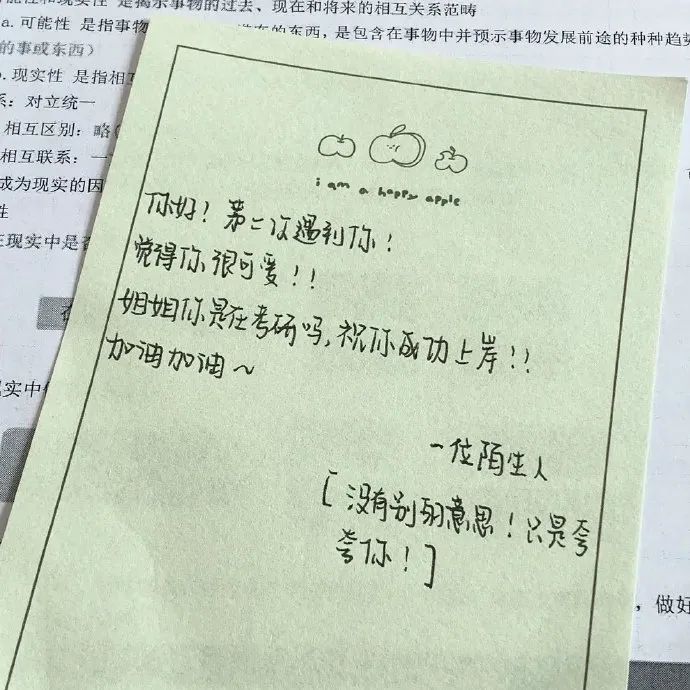 可能性和现实性 是揭示事物的过去、现在和将来的相互关系范畴
a.可能性 是指事物
在的东西，是包含在事物中并预示事物发展前途的种种趋势
的事或东西）
.现实性 是指相互
系：对立统一
相互区别：略
相互联系：一
成为现实的因
性
在现实中是否
i am a happy apple
你好！第二次遇到你！
觉得你很可爱！！
姐姐你是在考研吗，祝你成功上岸！！
加油加油～
一位陌生人
[ 没有别的意思！只是夸
夸你！]
现实中
，做好